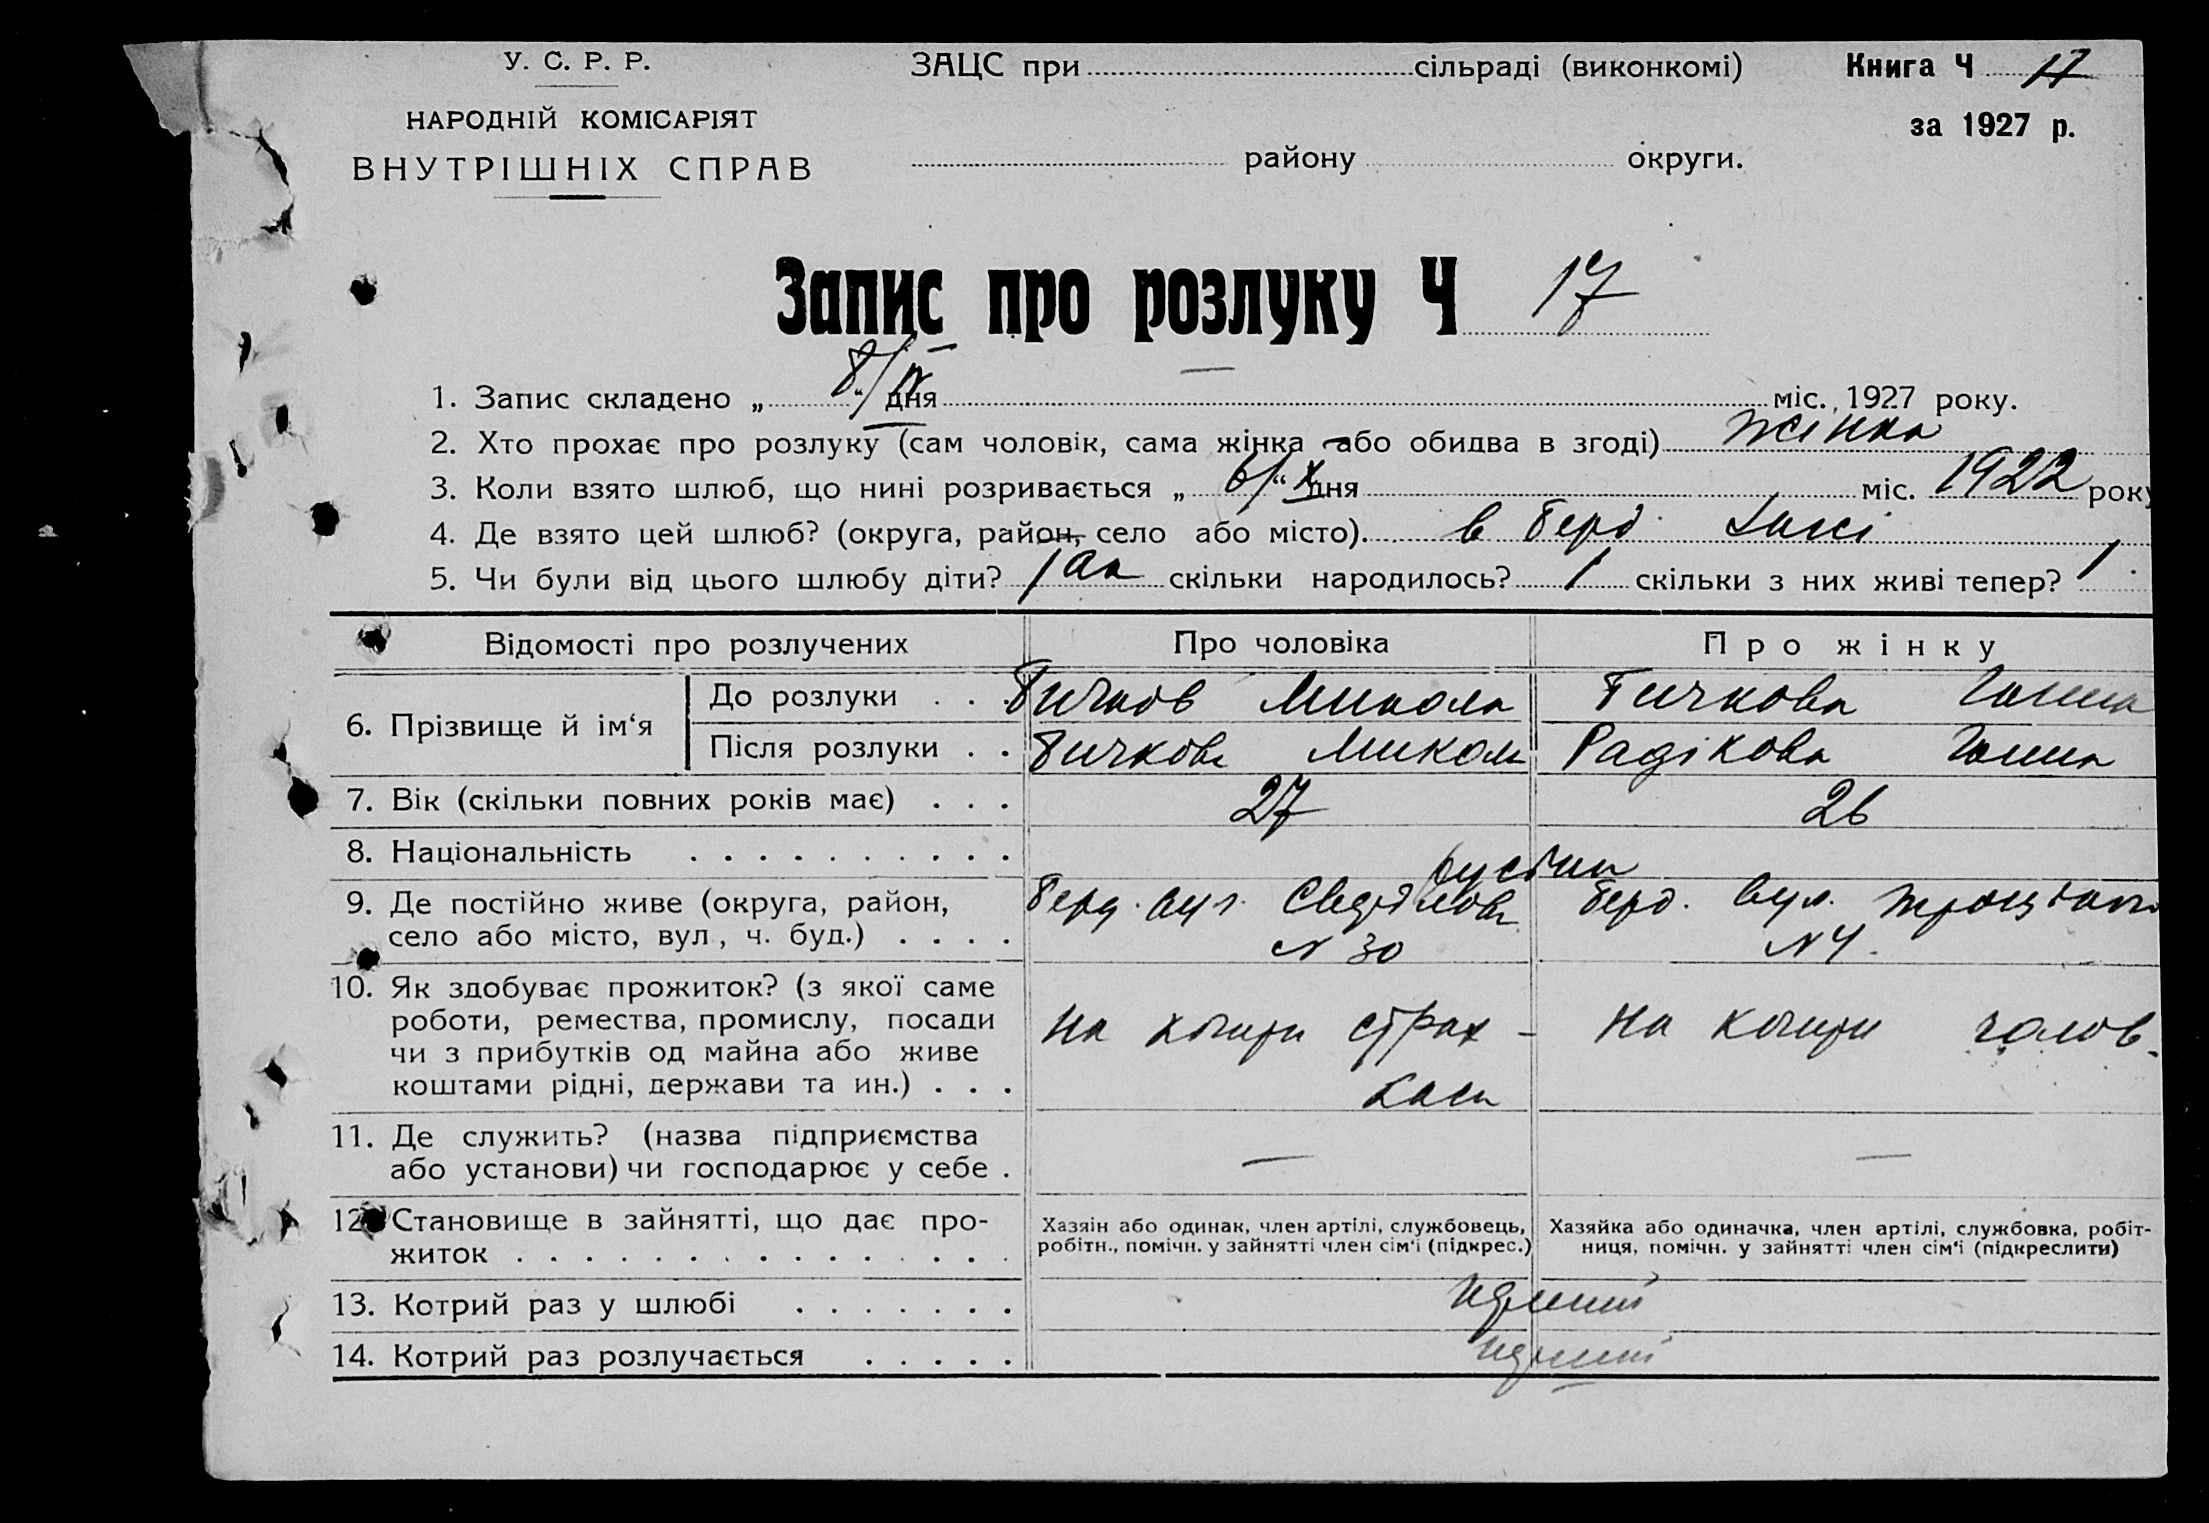 У. С. Р. Р.
НАРОДНІЙ КОМІСАРІЯТ
ВНУТРІШНІХ СПРАВ
ЗАЦС при сільраді (виконкомі)
району округи.
Книга Ч
за 1927 р.
Запис про розлуку Ч 17
1. Запис складено „ 8/IV “ дня міс. 1927 року.
2. Хто прохає про розлуку (сам чоловік, сама жінка або обидва в згоді) жінка
3. Коли взято шлюб, що нині розривається „ 6/X “ дня міс. 1922 року
4. Де взято цей шлюб? (округа, район, село або місто). в Берд.
5. Чи були від цього шлюбу діти? скільки народилось? 1 скільки з них живі тепер? 1
Відомості про розлучених Про чоловіка Про жінку
6. Прізвище й ім‘я До розлуки . . . Бичков Микола Бичкова Ганна
Після розлуки . . Бичков Микола Радікова Ганна
7. Вік (скільки повних років має) . . . 27 26
8. Національність . . . . . . . . . .
9. Де постійно живе (округа, район, Берд. вул. Берд. вул. Троцького
село або місто, вул., ч. буд.) . . . . N 30 N 4.
10. Як здобуває прожиток? (з якої саме
роботи, ремества, промислу, посади На кошти страх- На кошти чолов.
чи з прибутків од майна або живе
коштами рідні, держави та ин.) . . . каси
11. Де служить? (назва підприємства
або установи) чи господарює у себе . — —
12. Становище в зайнятті, що дає про-
житок . . . . . . . . . . . . . .
Хазяін або одинак, член артілі, службовець,
робітн., помічн. у зайнятті член сім‘ї (підкрес.)
Хазяйка або одиначка, член артілі, службовка, робіт-
ниця, помічн. у зайнятті член сім‘ї (підкреслити)
13. Котрий раз у шлюбі . . . . . . .
14. Котрий раз розлучається . . . . .